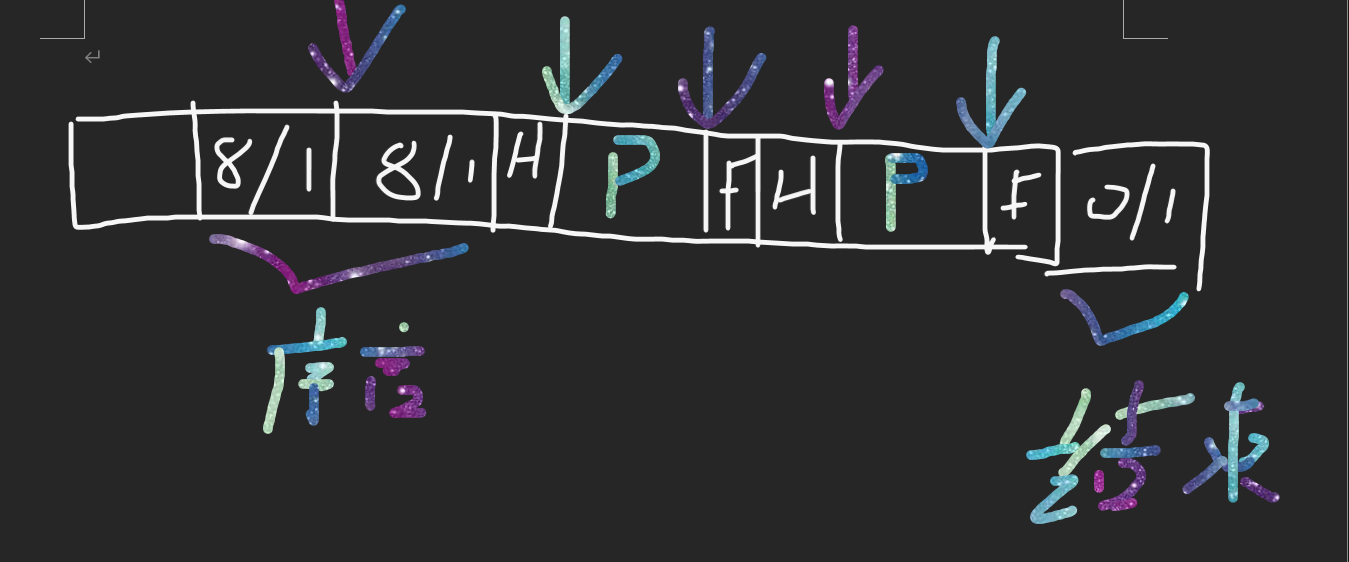 8/1 8/1 H P F H P F 0/1
序言 结束